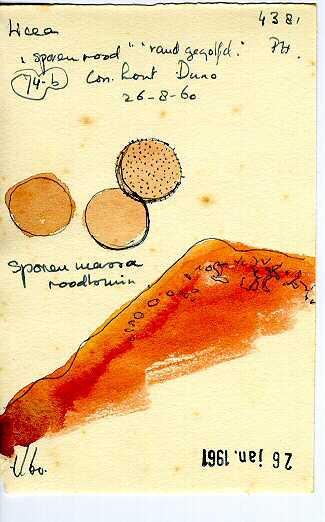 4381
Licea
"sporen rood" "rand gegolfd." PH.
74-b Con. hout Duno
26-8-60
Sporen massa
roodbruin
26 jan. 1961